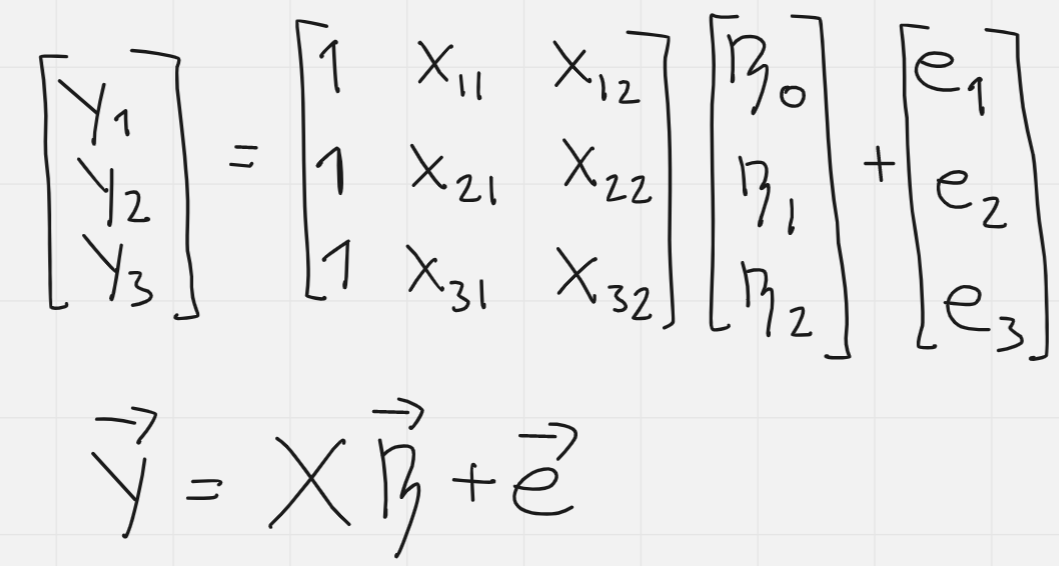 [Y₁ Y₂ Y₃] = [1 x₁₁ x₁₂ 1 x₂₁ x₂₂ 1 x₃₁ x₃₂] [β₀ β₁ β₂] + [e₁ e₂ e₃]
y⃗ = X β⃗ + e⃗